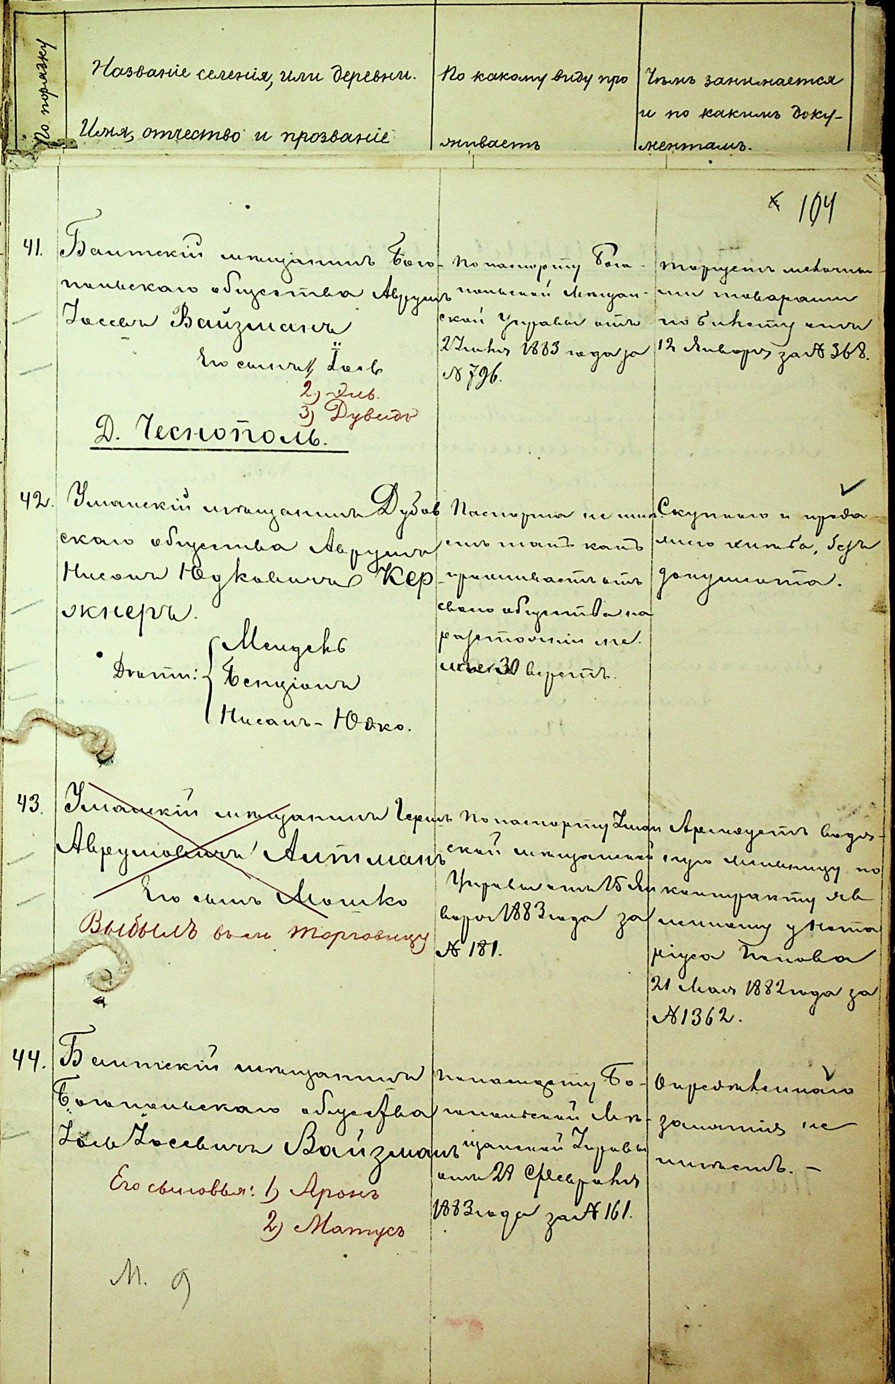 По порядку
Названіе селенія, или деревни.
Имя, отчество и прозваніе
По какому виду про
живаетъ
Чѣмъ занимается
и по какимъ доку-
ментамъ.
104
41.
Балтскій мѣщанинъ Бого-
польскаго общества Аврумъ
Іосевъ Вайзманъ
Его сынъ 1) Іось
2)
3) Дувидъ
По паспорту Бого-
польской Мѣщан-
ской Управы отъ
2 Іюня 1883 года за
№ 796.
Торгуетъ мелочны-
ми товарами
по билету отъ
12 Января за № 368.
Д. Чеснополь.
42.
Уманскій мѣщанинъ Дубов
скаго общества Аврумъ
Нисонъ Юдковичъ Кер-
жнеръ.
Дѣти:
Мендель
Бенціонъ
Нисанъ-Юдко.
Паспорта не имѣ
етъ такъ какъ
проживаетъ отъ
своего общества на
разстояніи не
30 верстъ.
Скупкою и прода-
жею хлѣба, безъ
документа.
43.
Уманскій мѣщанинъ Герш
Аврумовичъ Литманъ
Его сынъ Мошко
Выбылъ въ м. Торговицу
По паспорту Уман
ской мѣщанской
Управы отъ 15 Ян
варя 1883 года за
№ 181.
Арендуетъ водя-
ную мельницу по
контракту яв
ленному у Нота
ріуса Попова
21 Мая 1882 года за
№ 1362.
44.
Балтскій мѣщанинъ
Богопольскаго общества
Іось Іосевичъ Вайзманъ
Его сыновья: 1) Аронъ
2) Матусъ
По паспорту Бо-
гопольской Мѣ-
щанской Управы
отъ 21 Февраля
1883 года за № 161.
Опредѣленнаго
занятія не
имѣетъ. –
М. 9